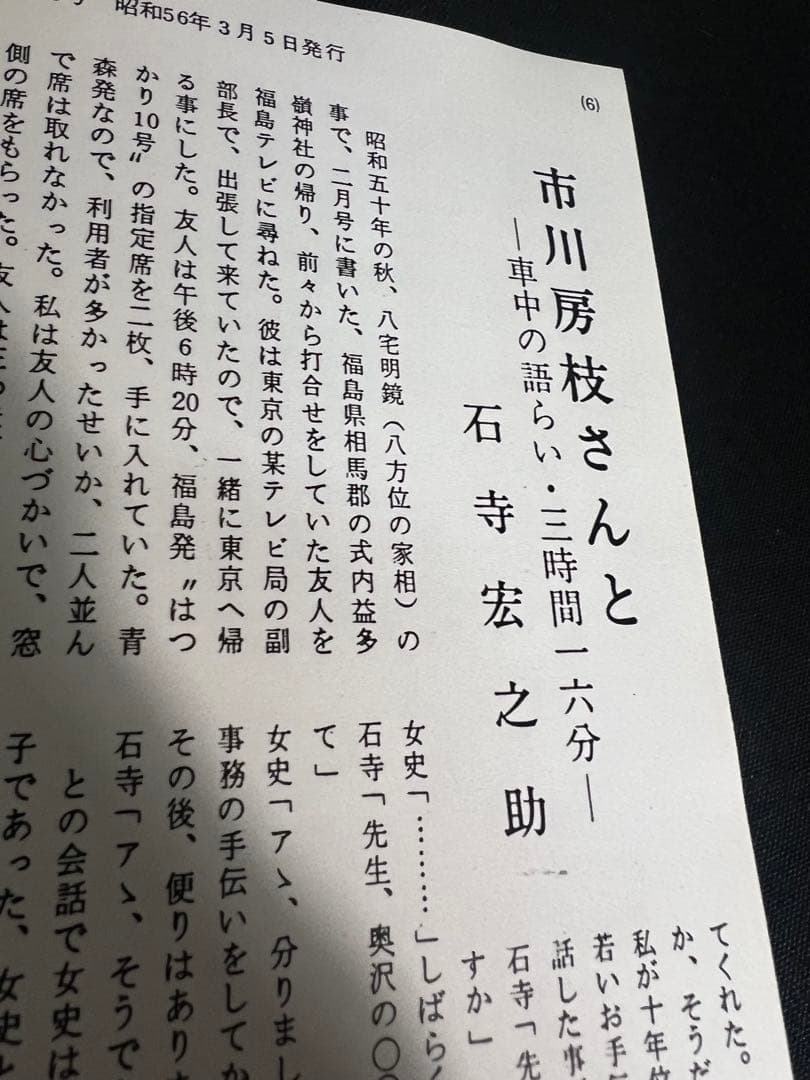 昭和56年3月5日発行
(6)
市川房枝さんと
―車中の語らい・三時間一六分―
石寺宏之助
昭和五十年の秋、八宅明鏡(八方位の家相)の
事で、二月号に書いた、福島県相馬郡の式内益多
嶺神社の帰り、前々から打合せをしていた友人を
福島テレビに尋ねた。彼は東京の某テレビ局の副
部長で、出張して来ていたので、一緒に東京へ帰
る事にした。友人は午後6時20分、福島発〝はつ
かり10号〟の指定席を二枚、手に入れていた。青
森発なので、利用者が多かったせいか、二人並ん
で席は取れなかった。私は友人の心づかいで、窓
側の席をもらった。友人は
てくれた。
か、そうだ
私が十年位
若いお手伝
話した事
石寺「先
すか」
女史「………」しばらく
石寺「先生、奥沢の〇〇
て」
女史「アヽ、分りまし
事務の手伝いをしてか
その後、便りはあり
石寺「アヽ、そうで
との会話で女史は
子であった、女史と